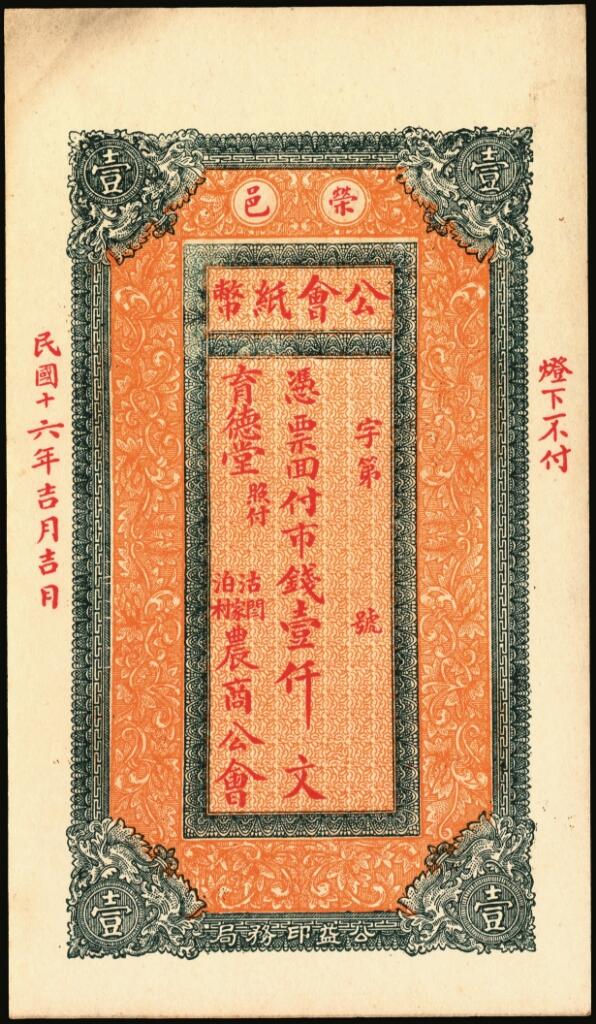 壹
壹
榮邑
公會紙幣
字第 號
憑票面付市錢壹仟文
育德堂 照付 沽閆家泊村 農商公會
燈下不付
民國十六年吉月吉日
壹
壹
公益印務局